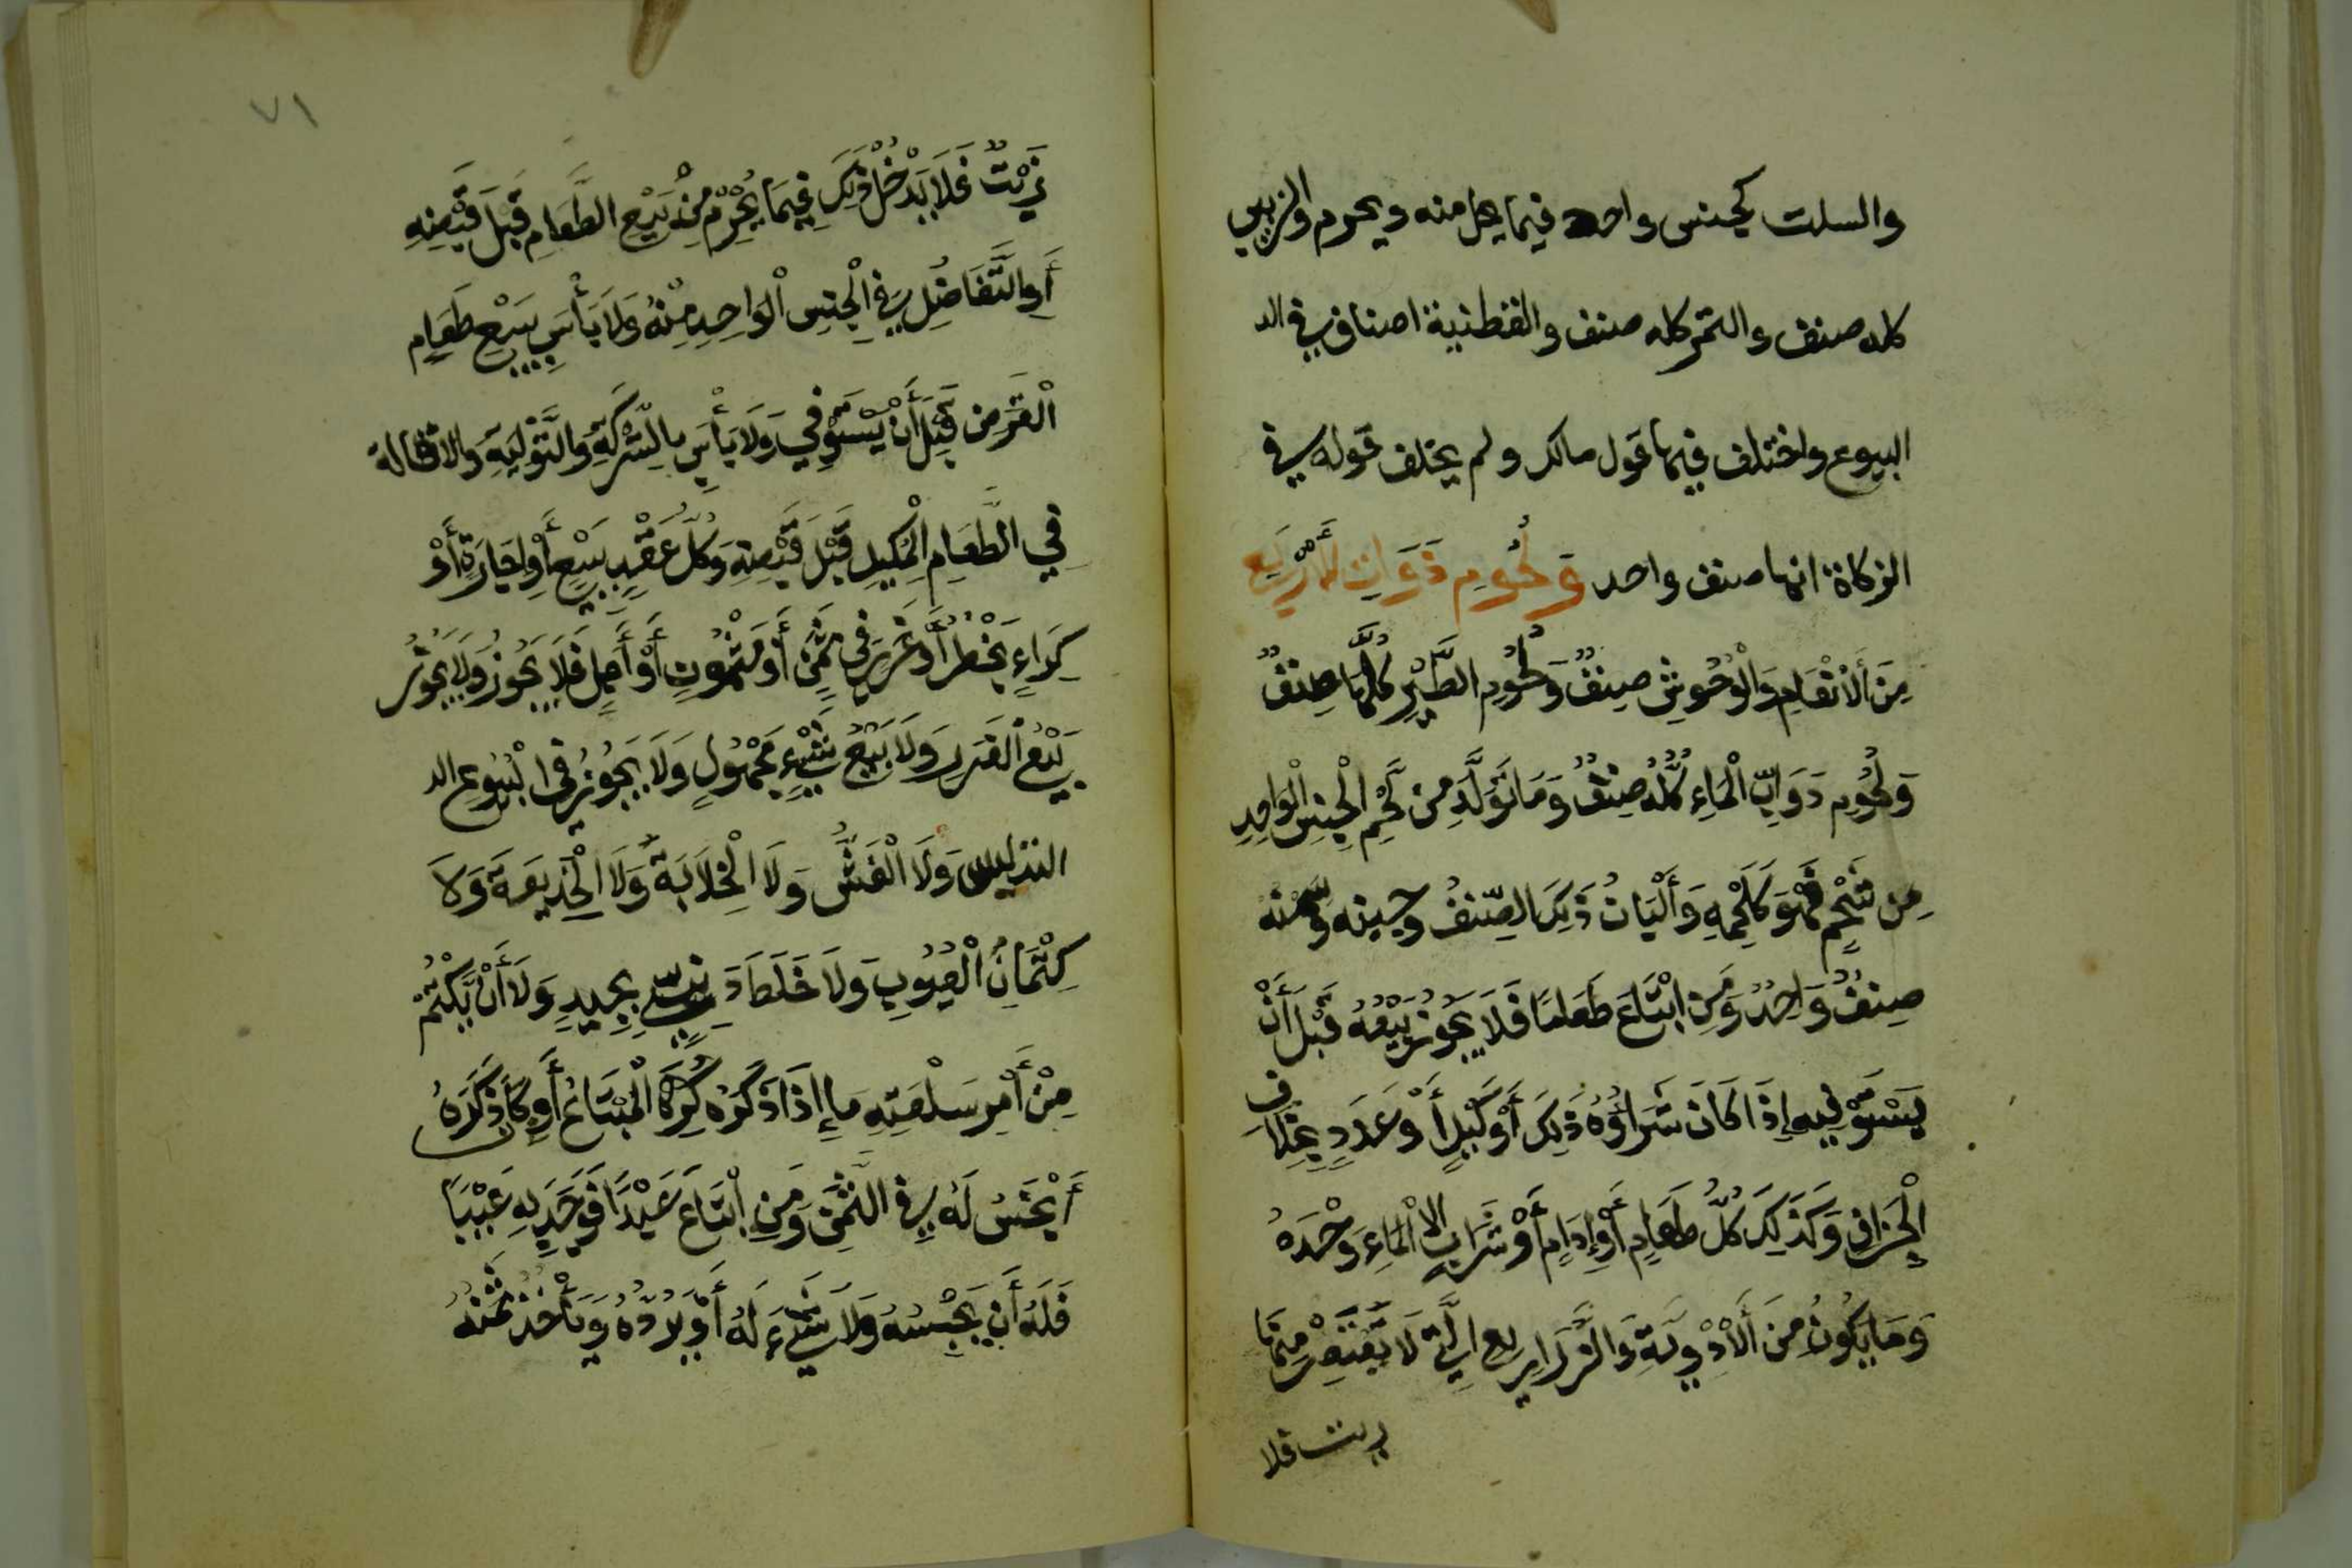 والسلت كجنس واحد فيما يحل منه ويحرم والزبيب
كله صنف والتمر كله صنف والقطنية اصناف في الد
البيوع واختلف فيها قول مالك ولم يختلف قوله في
الزكاة انها صنف واحد وَلُحُومِ ذَوَاتِ الأَرْبَعِ
مِنَ الأَنْعَامِ وَالْوُحُوشِ صِنفٌ وَلُحُومِ الطَّيْرِ كُلُّهَا صِنفٌ
وَلُحُومِ دَوَابِّ الْمَاءِ كُلُّهُ صِنفٌ وَمَا تَوَلَّدَ مِن لَحْمِ الْجِنسِ الْوَاحِدِ
مِن شَحْمٍ فَهُوَ كَلَحْمِهِ وَأَلْبَانُ ذَلِكَ الصِّنفُ وجبنه وسمنه
صِنفٌ وَاحِدٌ وَمَنِ ابْتَاعَ طَعَامًا فَلَا يَجُوزُ بَيْعُهُ قَبْلَ أَنْ
يَسْتَوْفِيه إِذَا كَانَ شَرَاؤُهُ ذَلِكَ أَوْ كَيْلٍ أَوْ عَدَدٍ بِخِلَافِ
الْجِزَافِ وَكَذَلِكَ كُلُّ طَعَامٍ أَوْ إِدَامٍ أَوْ شَرَابٍ إلا الْمَاءِ وَحْدَهُ
وَمَا يَكُونُ مِنَ الْأَدْوِيَةِ وَالزَّرَارِيعِ الَّتِي لَا يُعْتَصَرُ مِنْهَا
زيت فلا
٧١
زَيْتٌ فَلَا يَدْخُلُ ذَلِكَ فِيمَا يُحْرَمُ مِنْ بَيْعِ الطَّعَامِ قَبْلَ قَبْضِهِ
أَوِ التَّفَاضُلِ فِي الْجِنسِ الْوَاحِدِ مِنْهُ وَلَا بَأْسَ بِبَيْعِ طَعَامِ
الْقَرْضِ قَبْلَ أَنْ يَسْتَوْفِي وَلَا بَأْسَ بِالشَّرِكَةِ وَالتَّوْلِيَةِ وَالاقالة
فِي الطَّعَامِ الْمَكِيلِ قَبْلَ قَبْضِهِ وَكُلُّ عَقْدِ بَيْعٍ أَوْ إِجَارَةٍ أَوْ
كِرَاءٍ بِخَطْرٍ أَوْ غَرَرٍ فِي ثَمَنٍ أَوْ مَثْمُونٍ أَوْ أَجَلٍ فَلَا يَجُوزُ وَلَا يَجُوزُ
بَيْعُ الْغَرَرِ وَلَا بَيْعُ شَيْءٍ مَجْهُولٍ وَلَا يَجُوزُ فِي الْبُيُوعِ الد
التدليس وَلَا الْغَشُّ وَلَا الْخِلَابَةُ وَلَا الْخَدِيعَةَ وَلَا
كِتْمَانُ الْعُيُوبِ وَلَا خَلَطَ دَنِيٍّ بِجَيِّدٍ وَلَا أَنْ يَكْتُمَ
مِنْ أَمْرِ سَلْعَتِهِ مَا إِذَا ذَكَرَهُ كَرِهَ الْمُبْتَاعُ أَوْ كَانَ ذِكْرُهُ
أَبْخَسُ لَهُ فِي الثَّمَنِ وَمَنِ ابْتَاعَ عَبْدًا فَوَجَدَ بِهِ عَيْبًا
فَلَهُ أَن يَحْبِسُهُ وَلَا شَيْءَ لَهُ أَوْ يَرُدُّهُ وَيَأْخُذُ ثَمَنَهُ